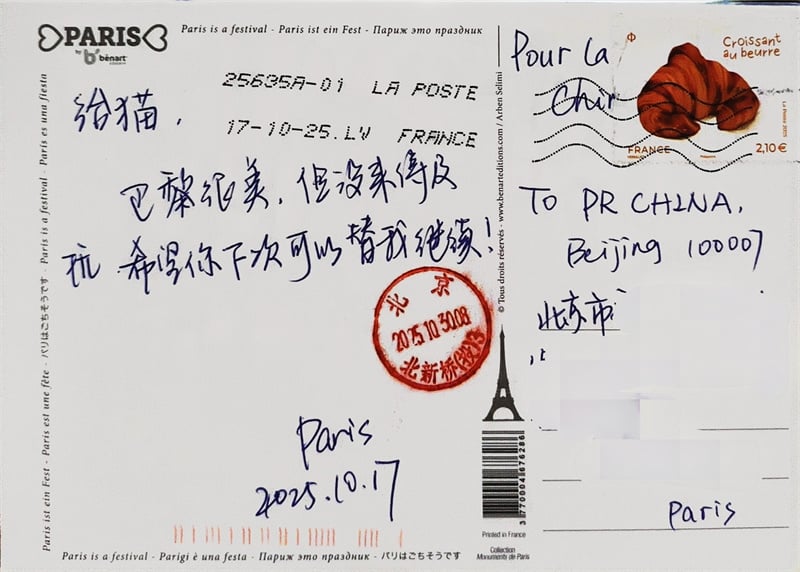 PARIS
by bënart
Paris is a festival - Paris ist ein Fest - Париж это праздник
25635A-01 LA POSTE
17-10-25.LV FRANCE
给猫，
巴黎很美，但没来得及
玩 希望你下次可以替我继续！
北京
2025.10.30.08
北新桥(投)3
Paris
2025.10.17
Paris is a festival - Parigi è una festa - Париж это праздник - パリはごちそうです
Paris ist ein Fest - Paris est une fête - パリはごちそうです - Paris is a festival - Paris es una fiesta
© Tous droits réservés - www.benarteditions.com / Arben Selimi
3 770004 676286
Printed in France
Collection
Monuments de Paris
Pour la
Chin
Croissant
au beurre
La Poste 2025
FRANCE
2,10 €
TO PR CHINA,
Beijing 100007
北京市
Paris